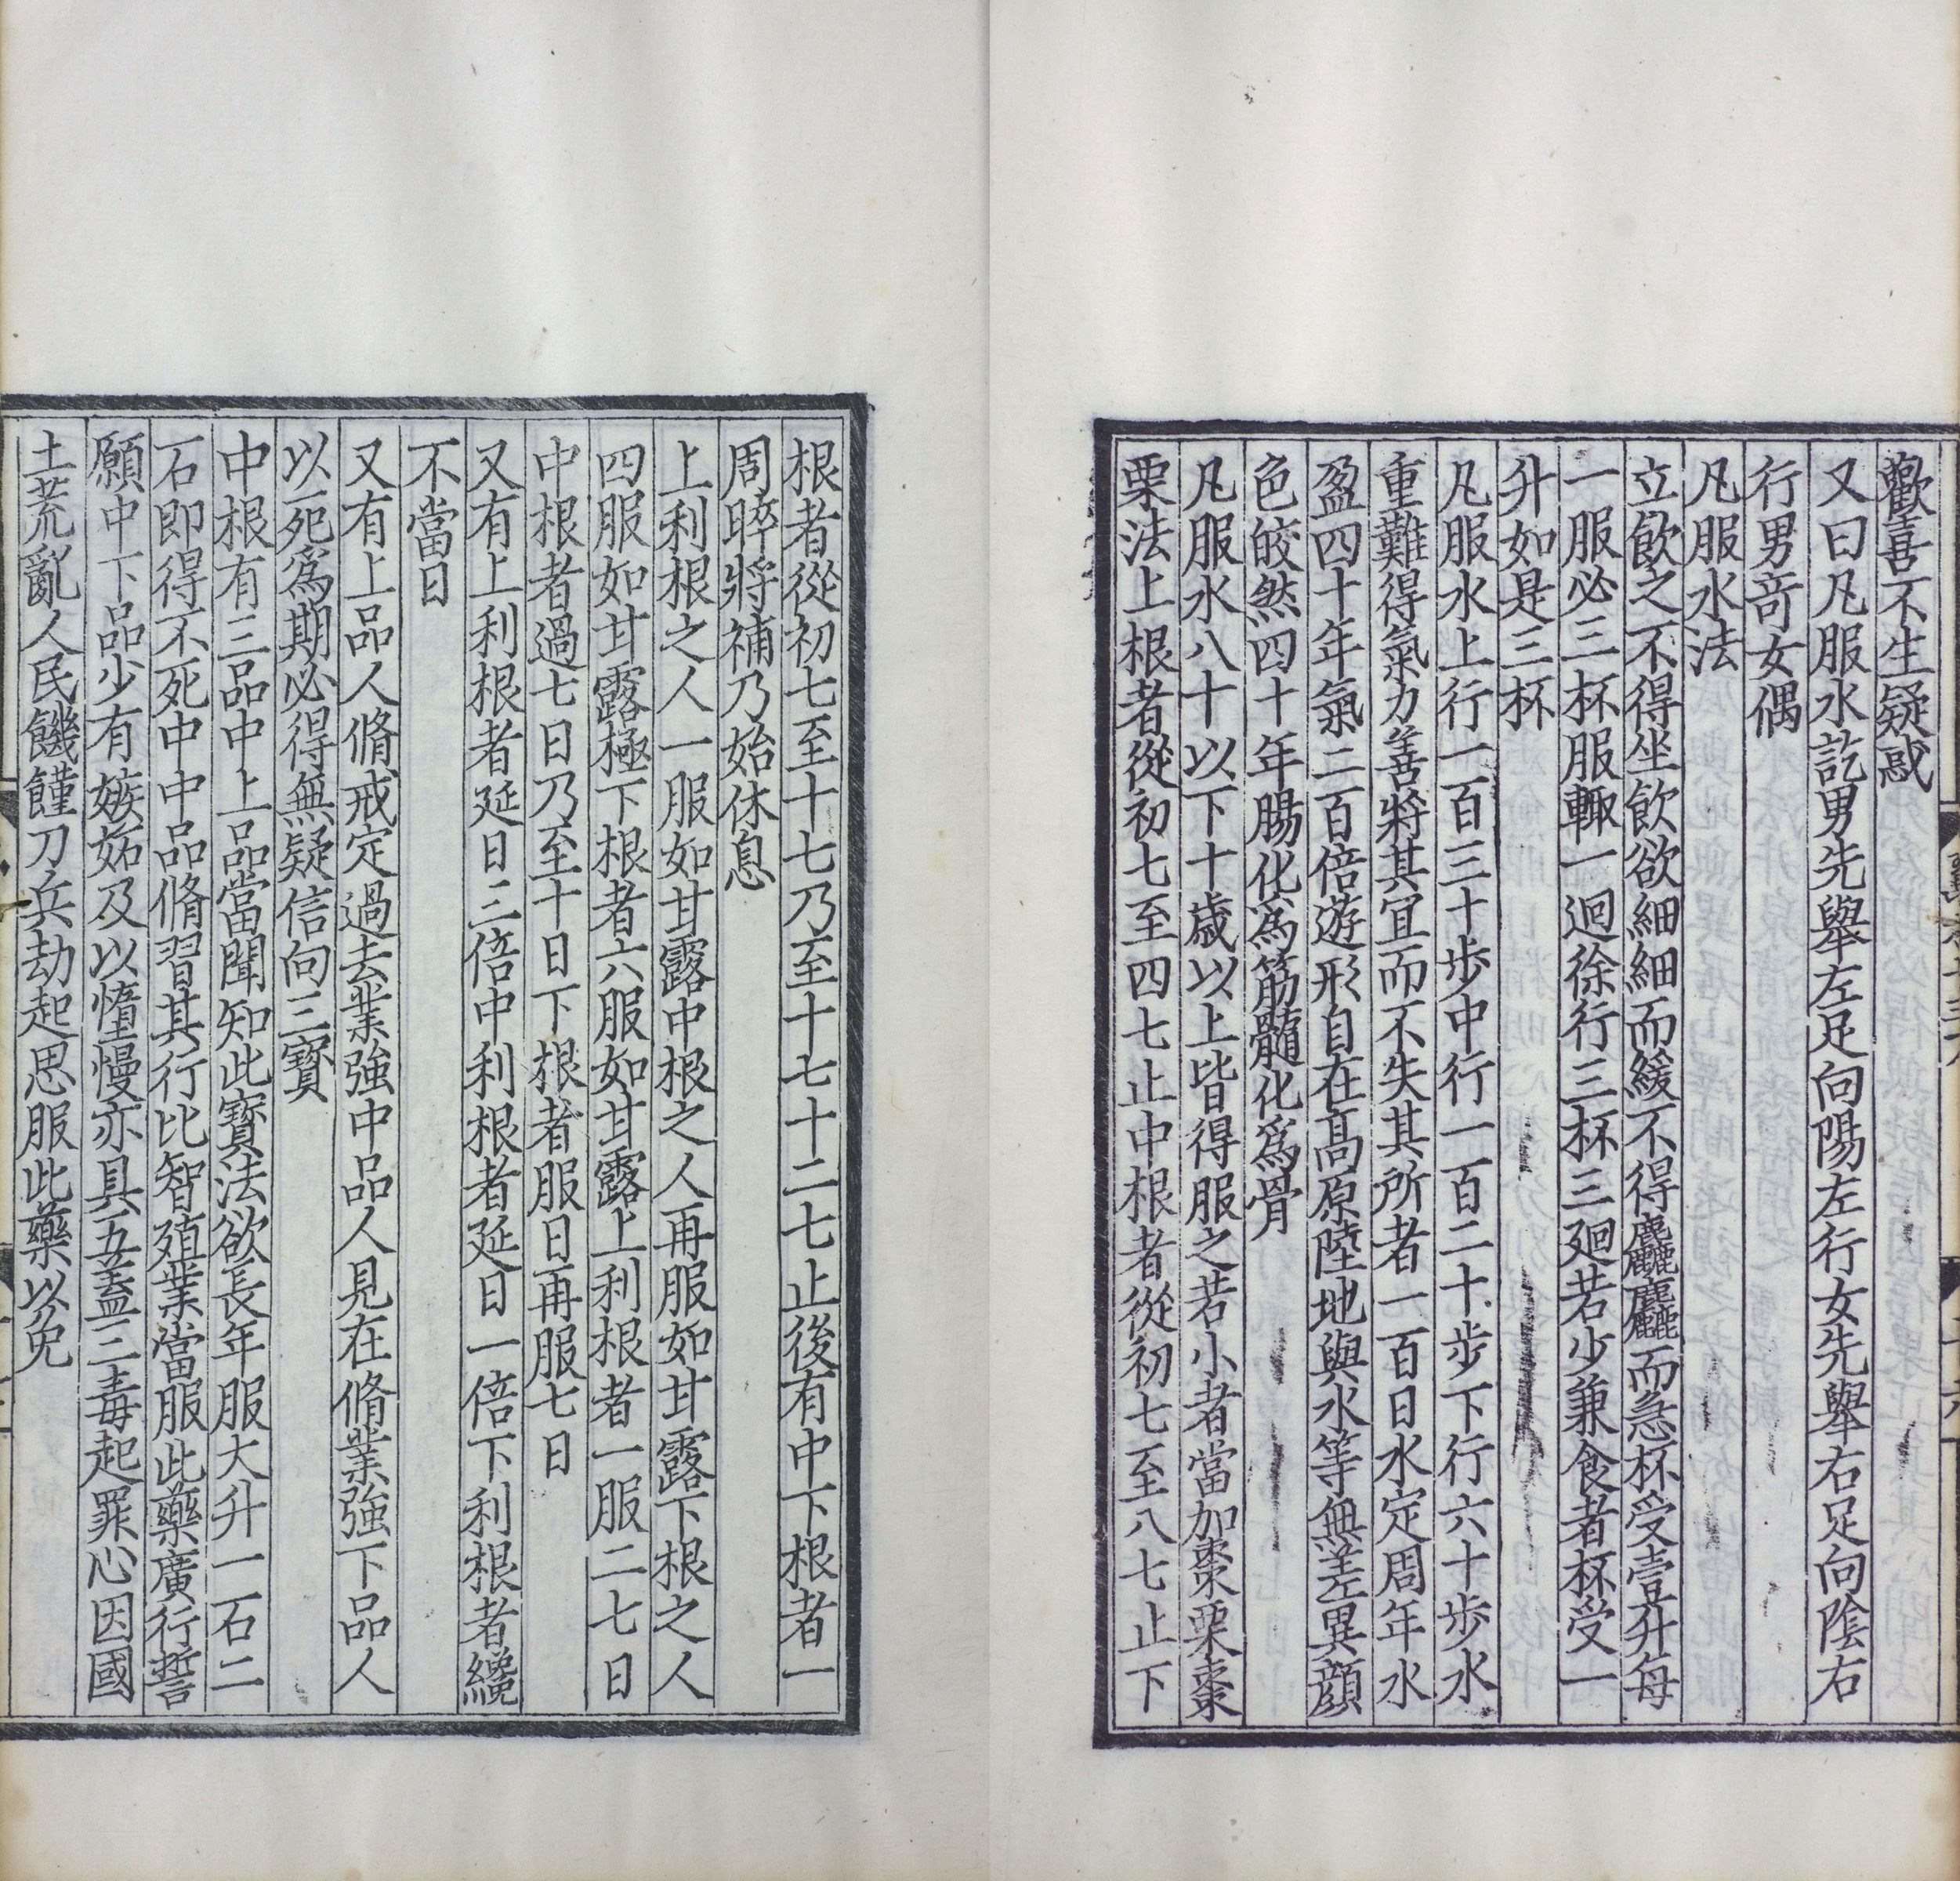 歡喜不生疑惑
又曰凡服水訖男先舉左足向陽左行女先舉右足向陰右
行男竒女偶
凡服水法
立飲之不得坐飲欲細細而緩不得麤麤而急杯受壹升每
一服必三杯服輙一迴徐行三杯三廻若少兼食者杯受一
升如是三杯
凡服水上行一百三十步中行一百二十步下行六十步水
重難得氣力善將其宜而不失其所者一百日水定周年水
盈四十年氣二百倍遊形自在髙原陸地與水等無差異顔
色皎然四十年腸化爲筋髓化爲骨
凡服水八十以下十歲以上皆得服之若小者當加棗栗棗
栗法上根者從初七至四七止中根者從初七至八七止下
根者從初七至十七乃至十七十二七止後有中下根者一
周晬將補乃始休息
上利根之人一服如甘露中根之人再服如甘露下根之人
四服如甘露極下根者六服如甘露上利根者一服二七日
中根者過七日乃至十日下根者服日再服七日
又有上利根者延日三倍中利根者延日一倍下利根者纔
不當日
又有上品人脩戒定過去業強中品人見在脩業強下品人
以死爲期必得無疑信向三寶
中根有三品中上品當聞知此寶法欲長年服大升一石二
石即得不死中中品脩習其行比智殖業當服此藥廣行誓
願中下品少有嫉妬及以憻慢亦具五葢三毒起罪心因國
土荒亂人民饑饉刀兵劫起思服此藥以免